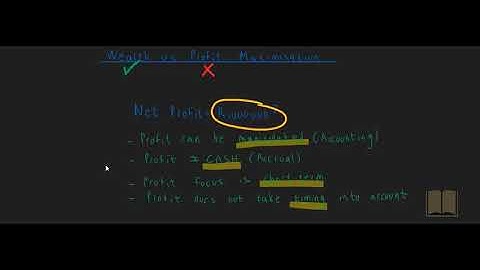 Wealth vs Profit Maximisation
Net Profit = R1000000
- Profit can be manipulated (Accounting)
- Profit ≠ CASH (Accrual)
- Profit focus is short-term
- Profit does not take timing into account